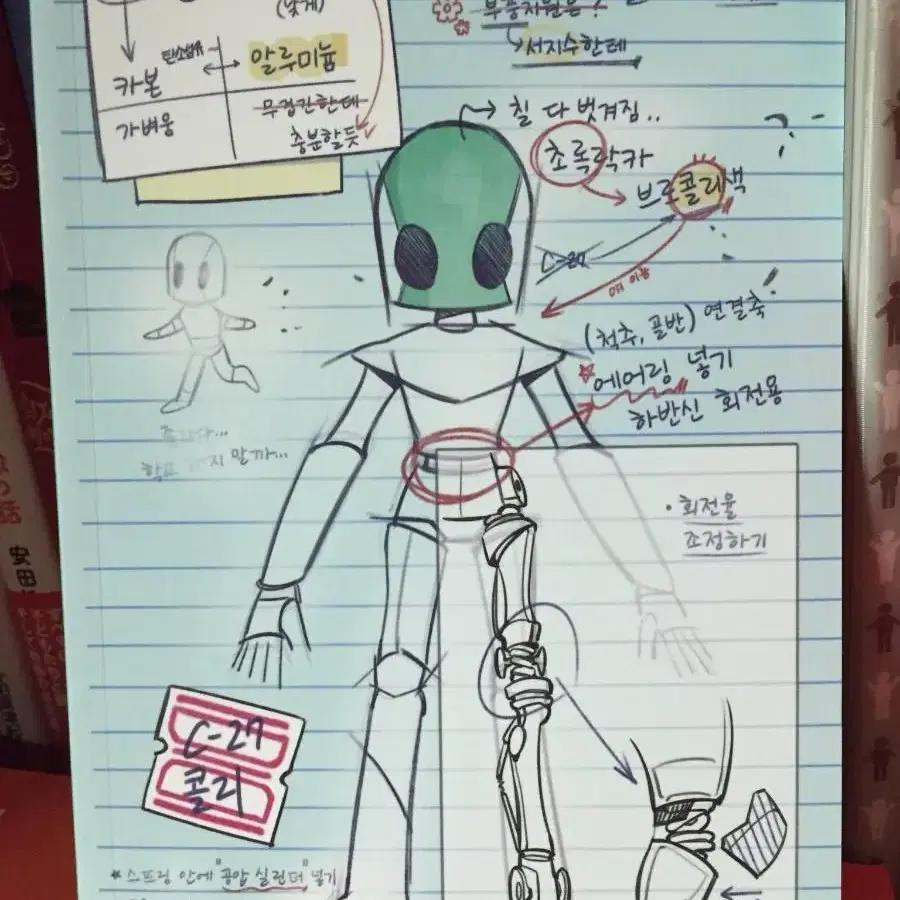 (낮게)
카본
탄소섬유
알루미늄
가벼움
무겁긴한데
충분할듯
부품지원은?
서지수한테
칠 다 벗겨짐..
초록락카
브로콜리색
C-27
여 이름
(척추, 골반) 연결축
에어링 넣기
하반신 회전용
말까...
• 회전율
조정하기
C-27
콜리
* 스프링 안에 "공압 실린더" 넣기
安田